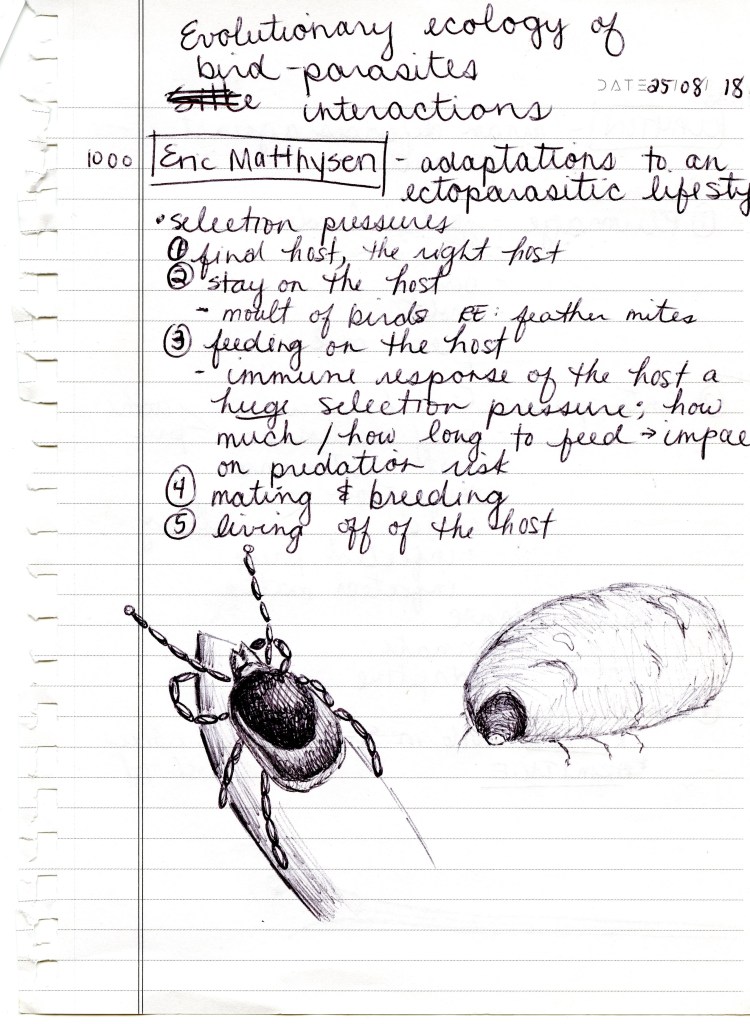 Evolutionary ecology of
bird-parasites
interactions
DATE 25/08/18
1000 Eric Matthysen - adaptations to an
ectoparasitic lifesty
• selection pressures
① find host, the right host
② stay on the host
- moult of birds RE: feather mites
③ feeding on the host
- immune response of the host a
huge selection pressure; how
much / how long to feed → impac
on predation risk
④ mating & breeding
⑤ living off of the host